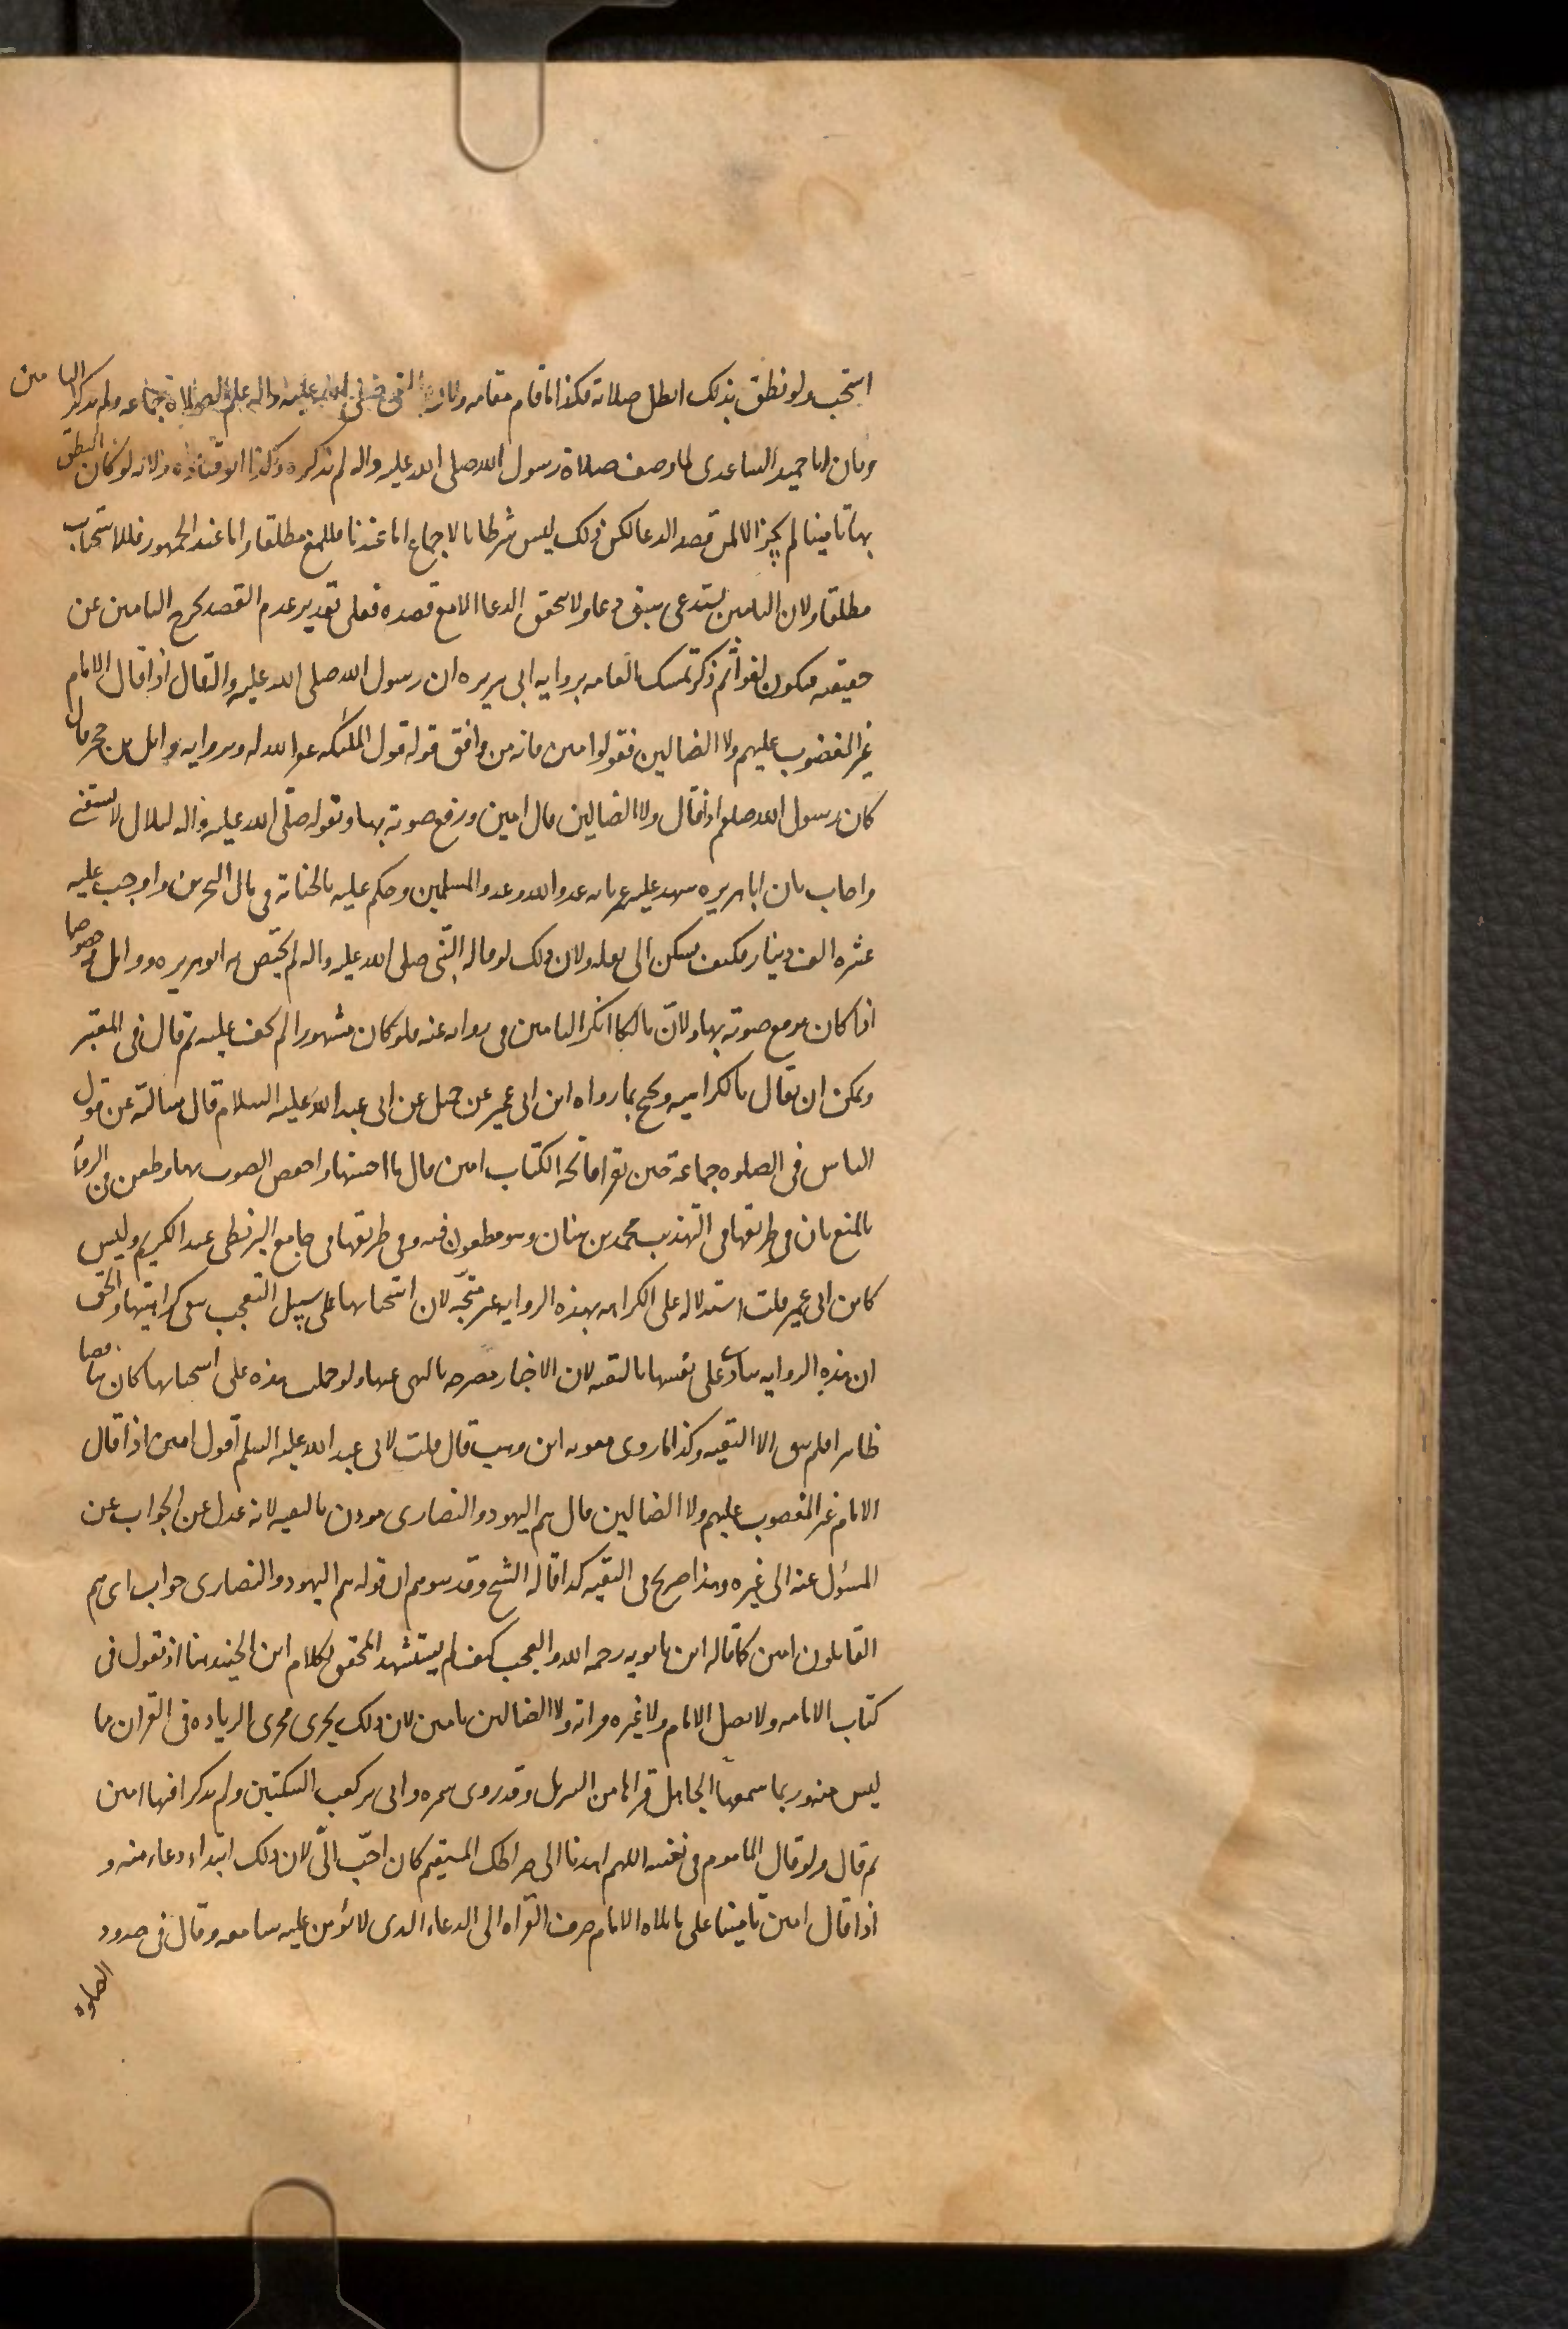 استجب ولو نطق بذلك ابطل صلاته فكذا ما قام مقامه ولان النبي صلى الله عليه واله علم الصلاة جماعه ولم يذكر التامين
وبان ابا حميد الساعدى لما وصف صلاة رسول الله صلى الله عليه واله لم يذكره وكذا ابو قتاده ولانه لو كان النطق
بها تامينا لم يجز الا لمن قصد الدعا لكن ذلك ليس شرطا بالاجماع اما عندنا فللمنع مطلقا واما عند الجمهور فللاستحباب
مطلقا ولان التامين يستدعى سبق دعا ولا يتحقق الدعا الا مع قصده فعلى تقدير عدم القصد يخرج التامين عن
حقيقته فيكون لغوا ثم ذكر تمسك العامه بروايه ابى هريره ان رسول الله صلى الله عليه واله قال اذا قال الامام
غير المغضوب عليهم ولا الضالين فقولوا امين فانه من وافق قوله قول الملئكه غفر الله له وبروايه وايل بن حجر قال
كان رسول الله صلعم اذا قال ولا الضالين قال امين ورفع صوته بها وبقوله صلى الله عليه واله لبلال لا تسبقنى
واجاب بان ابا هريره شهد عليه عمر بانه عدو الله وعدو المسلمين وحكم عليه بالخيانة فى مال البحرين واوجب عليه
عشره الف دينار فكيف يسكن الى نقله ولان ذلك لو قاله النبى صلى الله عليه واله لم يختص به ابو هريره ووايل خصوصا
اذا كان يرفع صوته بها ولان مالكا انكر التامين فى روايه عنه فلو كان مشهورا لم يخف عليه ثم قال فى المعتبر
ويمكن ان يقال بالكراهيه ويحتج بما رواه ابن ابى عمير عن جميل عن ابى عبد الله عليه السلام قال سالته عن قول
الناس فى الصلوه جماعة حين يقرا فاتحه الكتاب امين قال ما احسنها واخفض الصوت بها وطعن فى الرواية
بالمنع بان فى طريقها فى التهذيب محمد بن سنان وهو مطعون فيه وفى طريقها فى جامع البزنطى عبد الكريم وليس
كابن ابى عمير قلت استدلاله على الكراهه بهذه الروايه غير متجه لان استحبابها على سبيل التعجب ينفى كراهيتها والحق
ان هذه الروايه تنادى على نفسها بالتقيه لان الاخبار مصرحه بالنهى عنها ولو حملت هذه على استحبابها كان تناقضا
ظاهرا فلم يبق الا التقيه وكذا ما روى معويه ابن وهب قال قلت لابى عبد الله عليه السلم اقول امين اذا قال
الامام غير المغضوب عليهم ولا الضالين قال هم اليهود والنصارى موذن بالتقيه لانه عدل عن الجواب عن
المسئول عنه الى غيره وهذا صريح فى التقيه كذا قاله الشيخ وقد يتوهم ان قوله هم اليهود والنصارى جواب اى هم
القايلون امين كما قاله ابن بابويه رحمه الله والعجب كيف لم يستشهد المحقق بكلام ابن الجنيد هنا اذ يقول فى
كتاب الامامه ولا يصل الامام ولا غيره قراته ولا الضالين بامين لان ذلك يجرى مجرى الزياده فى القران ما
ليس منه وربما سمعها الجاهل فراها من التنزيل وقد روى سمره وابى بن كعب السكتين ولم يذكرا فيها امين
ثم قال ولو قال الماموم فى نفسه اللهم اهدنا الى صراطك المستقيم كان احب الى لان ذلك ابتداء دعاء منه و
اذا قال امين تامينا على ما تلاه الامام صرف القراه الى الدعاء الذى لا يؤمن عليه سامعه وقال فى حدود
الصلوة